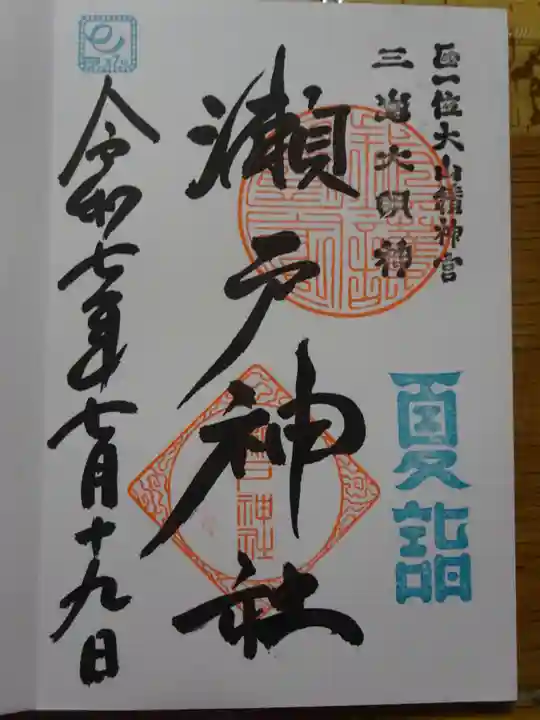 正一位大山積神宮
三嶋大明神
夏詣
瀬戸神社
令和七年七月十九日